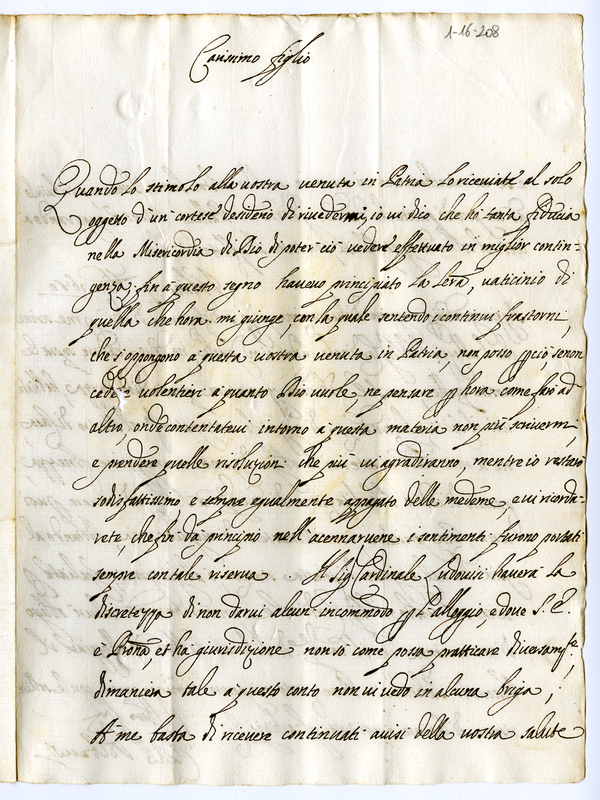 1-16-208
Carissimo figlio
Quando lo stimolo alla vostra venuta in Patria lo riceviate al solo
oggetto d'un cortese desiderio di rivedermi, io vi dico che hò tanta fiducia
nella Misericordia di Dio di poter ciò vedere effettuato in miglior contin=
genza; fin à questo segno havevo principiato la lera, vaticinio di
quella che hora mi giunge, con la quale sentendo i continui frastorni,
che s'oppongono a questa vostra venuta in Patria, non posso p ciò, se non
ceder volentieri à quanto Dio vuole, ne pensare p hora come farò ad
altro, onde contentatevi intorno a questa materia non più scrivermi,
e prendere quelle risoluzioni che più vi agradiranno, mentre io restarò
sodisfattissimo e sempre egualmente appagato delle medeme, e vi ricorda=
rete, che fin dà principio nell'acennarvene i sentimenti furono portati
sempre con tale riserva. Il Sig Cardinale Ludovisi haverà la
discretezza di non darvi alcun incommodo p l'alloggio, e dove S. E.
è Prona, et hà giurisdizione non sò come possa pratticare diversamte;
di maniera tale a questo conto non vi vedo in alcuna briga;
A' me basta di ricevere continuati avisi della vostra salute